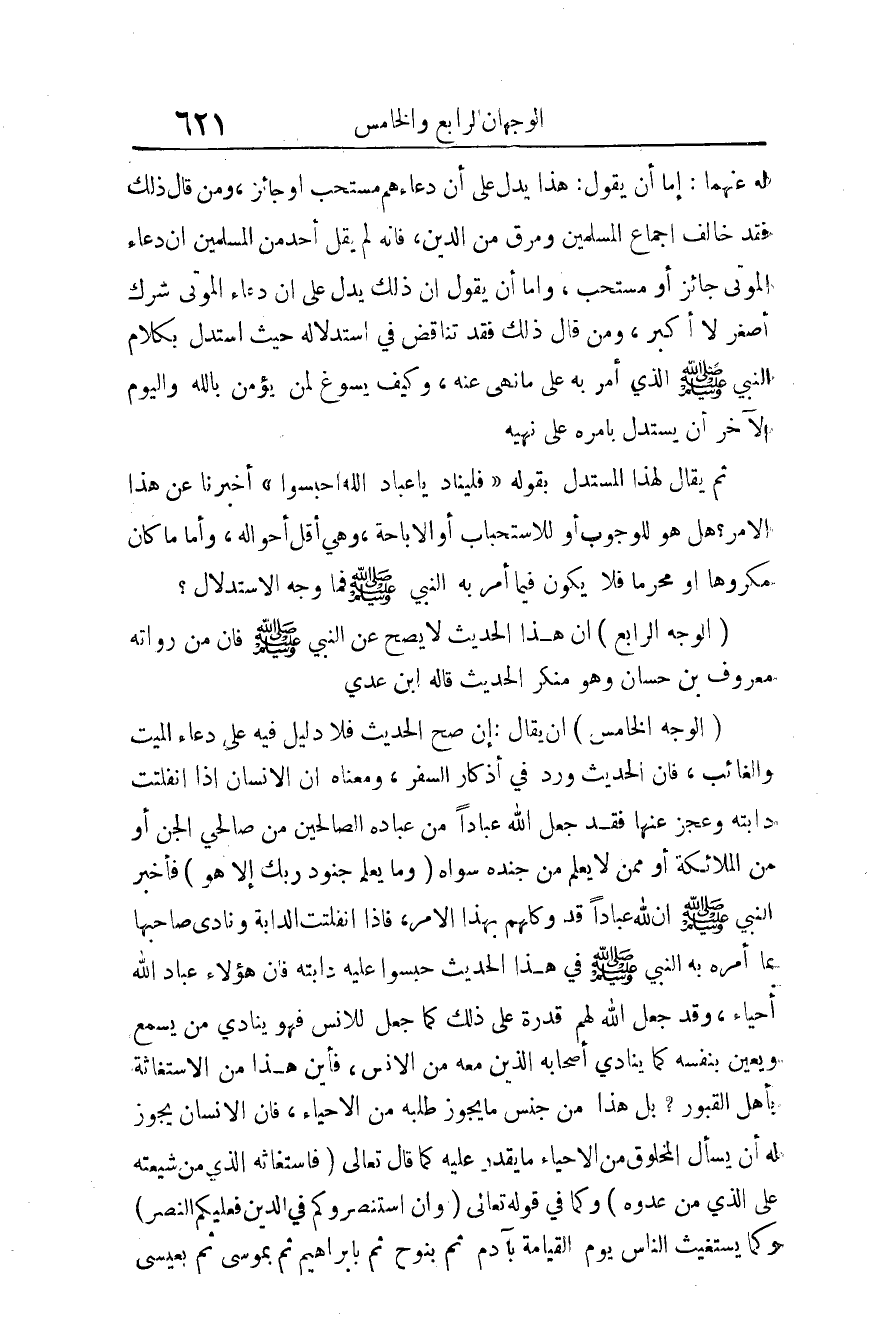 الوجهان الرابع والخامس ٦٢١
له عنهما : إما أن يقول: هذا يدل على أن دعاءهم مستحب او جائز ، ومن قال ذلك
فقد خالف اجماع المسلمين ومرق من الدين، فانه لم يقل أحد من المسلمين ان دعاء
الموتى جائز أو مستحب ، واما أن يقول ان ذلك يدل على ان دعاء الموتى شرك
أصغر لا أكبر ، ومن قال ذلك فقد تناقض في استدلاله حيث استدل بكلام
النبي ﷺ الذي أمر به على مانهى عنه ، وكيف يسوغ لمن يؤمن بالله واليوم
الآخر أن يستدل بامره على نهيه
ثم يقال لهذا المستدل بقوله « فليناد ياعباد الله احبسوا » أخبرنا عن هذا
الامر؟ هل هو للوجوب أو للاستحباب أو الاباحة ، وهي أقل أحواله ، وأما ما كان
مكروها او محرما فلا يكون فيما أمر به النبي ﷺ فما وجه الاستدلال ؟
( الوجه الرابع ) ان هـذا الحديث لايصح عن النبي ﷺ فان من رواته
معروف بن حسان وهو منكر الحديث قاله ابن عدي
( الوجه الخامس ) ان يقال : إن صح الحديث فلا دليل فيه على دعاء الميت
والغائب ، فان الحديث ورد في أذكار السفر ، ومعناه ان الانسان اذا انفلتت
دابته وعجز عنها فقـد جعل الله عباداً من عباده الصالحين من صالحي الجن أو
من الملائكة أو ممن لايعلم من جنده سواه ( وما يعلم جنود ربك إلا هو ) فأخبر
النبي ﷺ ان لله عباداً قد وكلهم بهذا الامر، فاذا انفلتت الدابة ونادى صاحبها
بما أمره به النبي ﷺ في هـذا الحديث حبسوا عليه دابته فان هؤلاء عباد الله
أحياء ، وقد جعل الله لهم قدرة على ذلك كما جعل للانس فهو ينادي من يسمع
ويعين بنفسه كما ينادي أصحابه الذين معه من الانس ، فأين هـذا من الاستغاثة
بأهل القبور ? بل هذا من جنس مايجوز طلبه من الاحياء ، فان الانسان يجوز
له أن يسأل المخلوق من الاحياء مايقدر عليه كما قال تعالى ( فاستغاثه الذي من شيعته
على الذي من عدوه ) وكما في قوله تعالى ( وان استنصروكم في الدين فعليكم النصر )
وكما يستغيث الناس يوم القيامة بآدم ثم بنوح ثم بابراهيم ثم بموسى ثم بعيسى